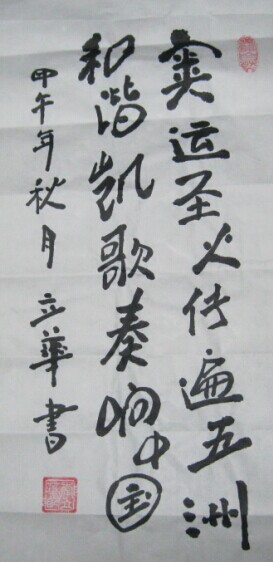 奥运圣火传遍五洲
和谐凯歌奏响中国
甲午年秋月 立华书